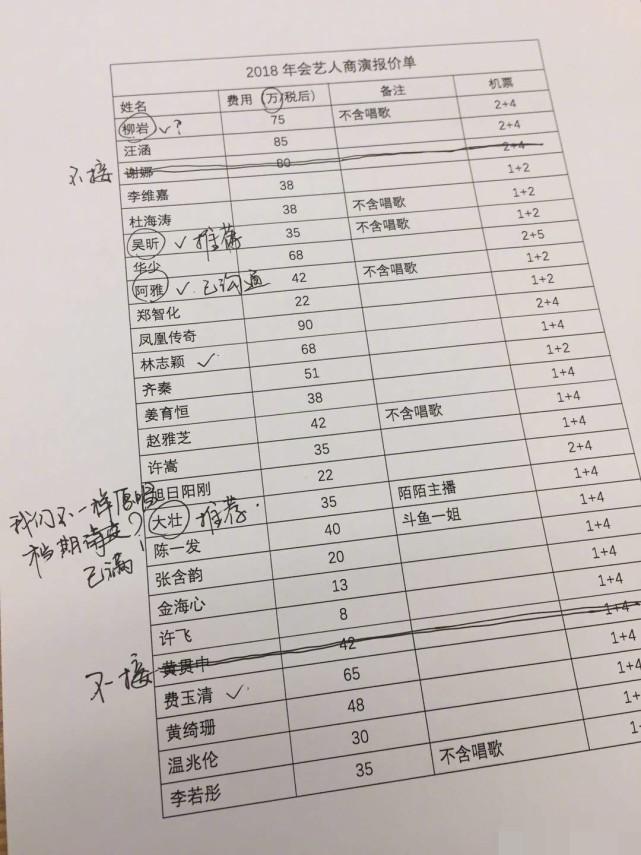 2018 年会艺人商演报价单
姓名 费用 万(税后) 备注 机票
柳岩 ✓? 75 不含唱歌 2+4
汪涵 85 2+4
不接 谢娜 80 2+4
李维嘉 38 1+2
杜海涛 38 不含唱歌 1+2
吴昕 ✓ 推荐 35 不含唱歌 1+2
华少 68 2+5
阿雅 ✓ 已沟通 42 不含唱歌 1+2
郑智化 22 1+2
凤凰传奇 90 2+4
林志颖 ✓ 68 1+4
齐秦 51 1+2
姜育恒 38 1+4
赵雅芝 42 不含唱歌 1+4
许嵩 35 1+4
旭日阳刚 22 2+4
我们不一样原唱
档期待定?
已满!
大壮 推荐. 35 陌陌主播 1+4
陈一发 40 斗鱼一姐 1+4
张含韵 20 1+4
金海心 13 1+4
许飞 8 1+4
不接 黄贯中 42 1+4
费玉清 ✓ 65 1+4
黄绮珊 48 1+4
温兆伦 30 1+
李若彤 35 不含唱歌